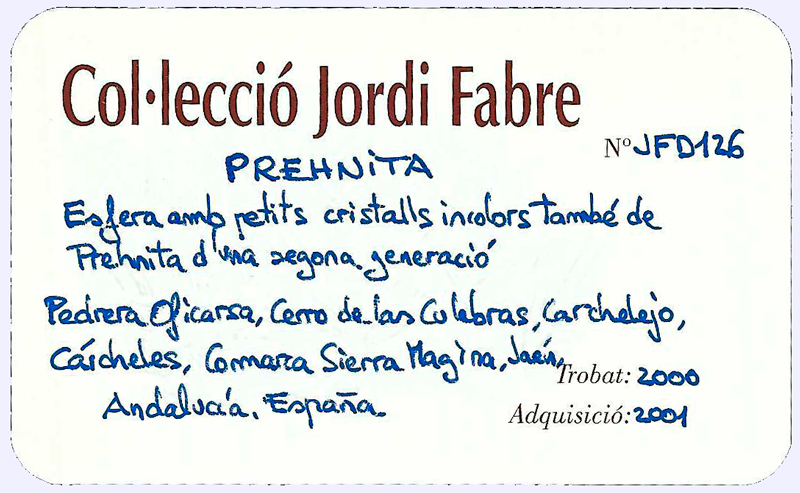 Col·lecció Jordi Fabre
Nº JFD126
PREHNITA
Esfera amb petits cristalls incolors també de
Prehnita d'una segona generació
Pedrera Oficarsa, Cerro de las Culebras, Carchelejo,
Cárcheles, Comarca Sierra Magina, Jaén,
Trobat: 2000
Andalucía. España.
Adquisició: 2001